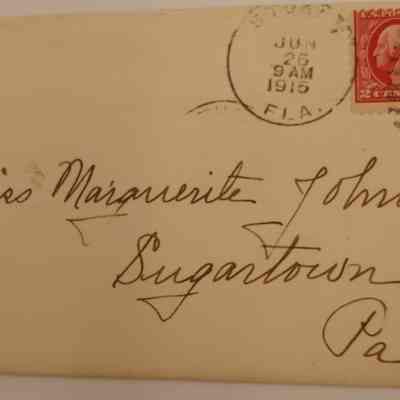 JUN
26
9 AM
1915
FLA.
2 CEN
iss Marguerite John
Sugartown
Pa